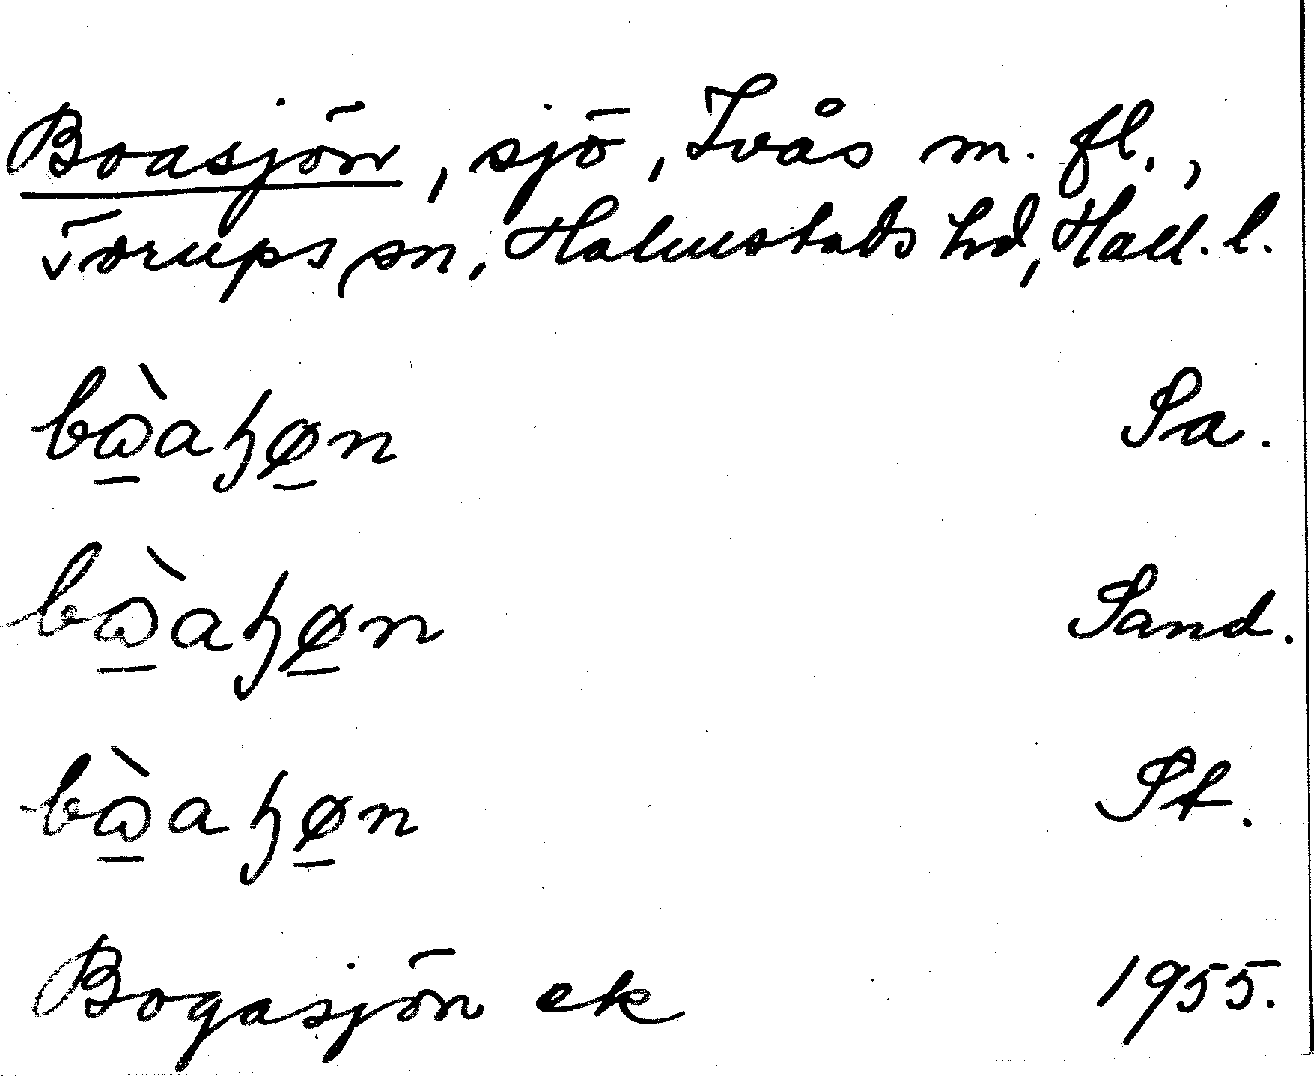 Boasjön, sjö, Tvås m. fl.,
Torups sn, Halmstads hd, Hall. l.
bɷ̠̀aꜧø̠n Sa.
bɷ̠̀aꜧø̠n Sand.
bɷ̠̀aꜧø̠n St.
Bogasjön ek 1955.